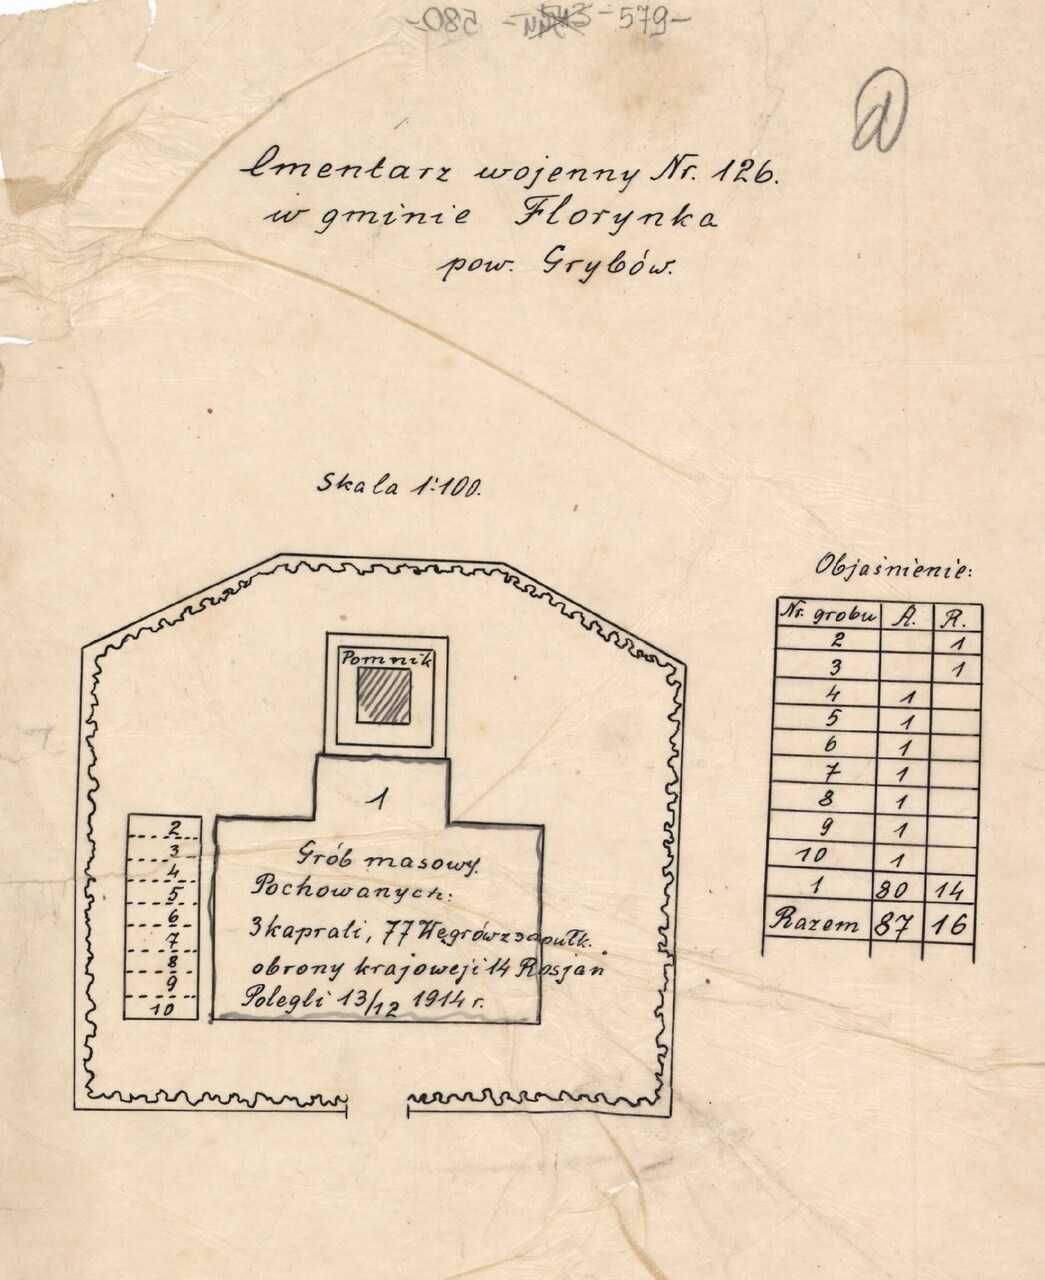 -579-
-580-
d
Cmentarz wojenny Nr. 126.
w gminie Florynka
pow. Grybów.
Skala 1:100.
Pomnik
1
Grób masowy.
Pochowanych:
3 kaprali, 77 Węgrów z pułk.
obrony krajowej i 14 Rosjan
Polegli 13/12 1914 r.
2
3
4
5
6
7
8
9
10
Objaśnienie:
Nr. grobu A. R.
2 1
3 1
4 1
5 1
6 1
7 1
8 1
9 1
10 1
1 80 14
Razem 87 16